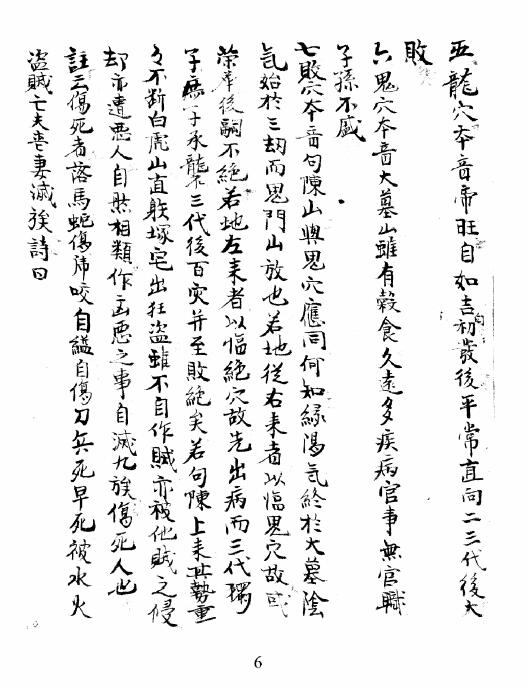 五龍穴本音帝旺自如吉初發後平常直向二三代後大
敗
六鬼穴本音大墓山雖有穀食久遠多疾病官事無官職
子孫不盛
七敗穴本音句陳山與鬼穴應同何如緣陽氣終於大墓陰
氣始於三劫而鬼門山放也若地從右來者以臨鬼穴故或
榮華後嗣不絕若地左來者以臨絕穴故先出病而三代獨
子無子承龍三代後百灾并至敗絕矣若句陳上来其勢重
々不断白虎山直躲塚宅出狂盜雖不自作贼亦被他贼之侵
却亦遭悪人自然相類作凶悪之事自滅九族傷死人也
註云傷死者落馬蛇傷帍咬自縊自傷刀兵死早死被水火
盜贼亡夫喪妻滅族詩曰
6